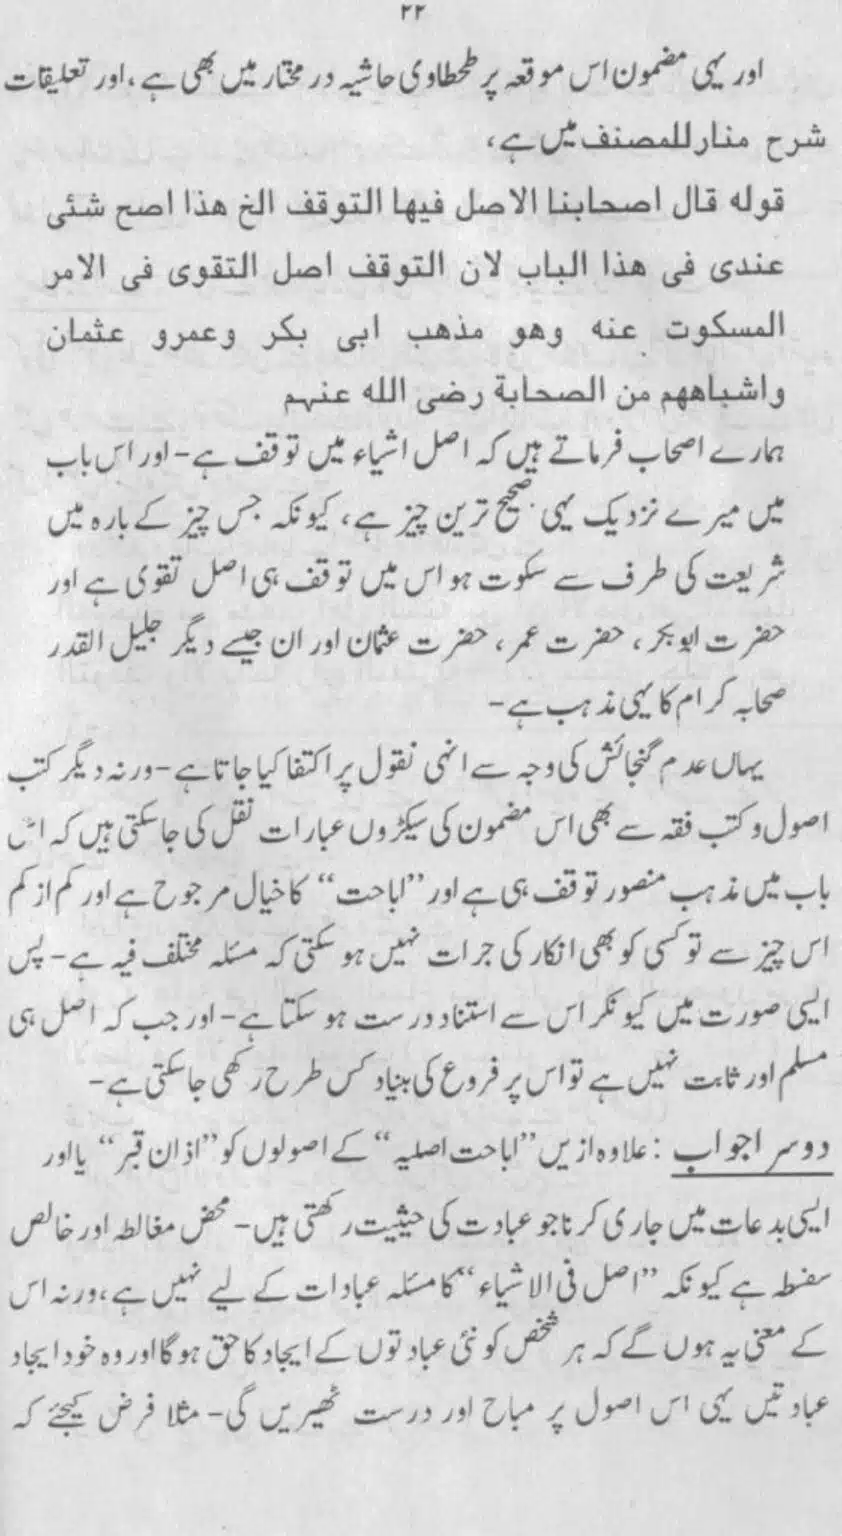 ۲۲
اور یہی مضمون اس موقعہ پر طحطاوی حاشیہ در مختار میں بھی ہے، اور تعلیقات
شرح منار للمصنف میں ہے،
قوله قال اصحابنا الاصل فیها التوقف الخ هذا اصح شئی
عندی فی هذا الباب لان التوقف اصل التقوی فی الامر
المسکوت عنه وهو مذهب ابی بکر وعمرو عثمان
واشباههم من الصحابة رضی الله عنہم
ہمارے اصحاب فرماتے ہیں کہ اصل اشیاء میں توقف ہے۔ اور اس باب
میں میرے نزدیک یہی صحیح ترین چیز ہے، کیونکہ جس چیز کے بارہ میں
شریعت کی طرف سے سکوت ہو اس میں توقف ہی اصل تقوی ہے اور
حضرت ابوبکر، حضرت عمر، حضرت عثمان اور ان جیسے دیگر جلیل القدر
صحابہ کرام کا یہی مذہب ہے۔
یہاں عدم گنجائش کی وجہ سے انہی نقول پر اکتفا کیا جاتا ہے۔ ورنہ دیگر کتب
اصول و کتب فقہ سے بھی اس مضمون کی سیکڑوں عبارات نقل کی جا سکتی ہیں کہ اس
باب میں مذہب منصور توقف ہی ہے اور ”اباحت“ کا خیال مرجوح ہے اور کم از کم
اس چیز سے تو کسی کو بھی انکار کی جرات نہیں ہو سکتی کہ مسئلہ مختلف فیہ ہے۔ پس
ایسی صورت میں کیونکر اس سے استناد درست ہو سکتا ہے۔ اور جب کہ اصل ہی
مسلم اور ثابت نہیں ہے تو اس پر فروع کی بنیاد کس طرح رکھی جا سکتی ہے۔
دوسرا جواب: علاوہ ازیں ”اباحت اصلیہ“ کے اصولوں کو ”اذان قبر“ یا اور
ایسی بدعات میں جاری کرنا جو عبادت کی حیثیت رکھتی ہیں۔ محض مغالطہ اور خالص
سفسطہ ہے کیونکہ ”اصل فی الاشیاء“ کا مسئلہ عبادات کے لیے نہیں ہے، ورنہ اس
کے معنی یہ ہوں گے کہ ہر شخص کو نئی عبادتوں کے ایجاد کا حق ہو گا اور وہ خود ایجاد
عبادتیں یہی اس اصول پر مباح اور درست ٹھیریں گی۔ مثلا فرض کیجئے کہ